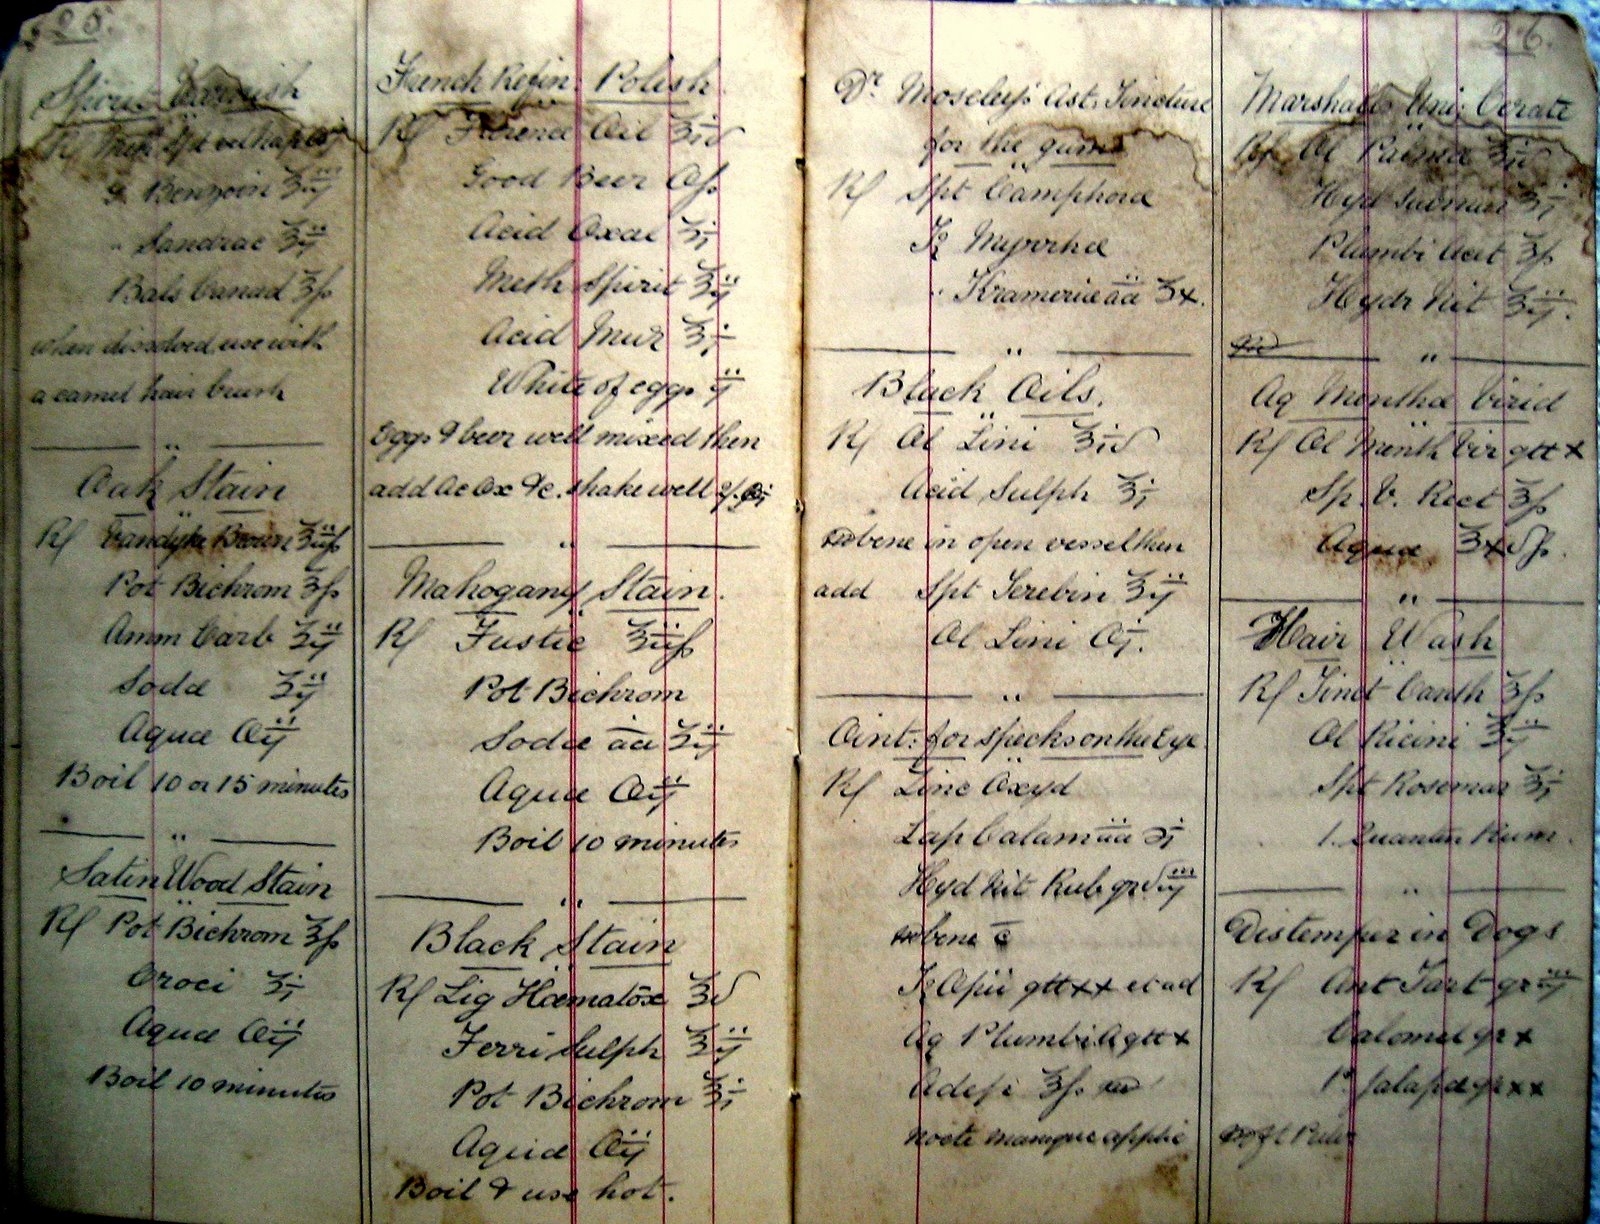 25.
Spirit Varnish
Rx Meth Spt
G. Benzoin ʒiij
" Sandrac ʒiij
Bals Canad ʒſs
when dissolved use with
a camel hair brush
Oak Stain
Rx Vandyke Brown ʒiiſs
Pot Bichrom ʒſs
Amm Carb ʒij
Soda ʒij
Aqua Oij
Boil 10 or 15 minutes
Satin Wood Stain
Rx Pot Bichrom ʒſs
Croci ʒj
Aqua Oij
Boil 10 minutes
French Polish
Rx Oil ʒiv
Good Beer Oſs
Acid Oxal ʒj
Meth Spirit ʒij
Acid Mur ʒj
White of eggs ij
Eggs & beer well mixed then
add Ac Ox &c. shake well
Mahogany Stain.
Rx Fustic ʒiiſs
Pot Bichrom
Sodæ āā ʒij
Aqua Oij
Boil 10 minutes
Black Stain
Rx Lig Hæmatox ʒv
Ferri Sulph ʒij
Pot Bichrom ʒj
Aqua Oij
Boil & use hot.
26.
Dr Moseley's Ast. Tincture
for the gums
Rx Spt Camphoræ
Tr Myrrhæ
" Krameriæ āā ʒx.
Black Oils.
Rx Ol Lini ʒiv
Acid Sulph ʒj
bene in open vessel then
add Spt Terebin ʒij
Ol Lini Oj.
Oint. for specks on the Eye
Rx Zinc Oxyd
Lap Calam āā ℈j
Hyd Nit Rub gr viij
bene c̄
Tr Opii gtt xx et ad
Aq Plumbi A gtt x
Adeps ʒſs
nocte manque applic
Marshall's Uni: Cerate
Rx Ol Palmæ ʒiv
Hyd Submur ʒj
Plumbi Acet ʒſs
Hydr Nit ʒij.
Aq Menthæ Virid
Rx Ol Menth Vir gtt x
Sp. V. Rect ʒſs
Aqua ʒxvſs.
Hair Wash
Rx Tinct Canth ʒſs
Ol Ricini ʒij
Spt Rosemar ʒj
1. Quartern Rum.
Distemper in Dogs
Rx Ant Tart gr iij
Calomel gr x
P. Jalapæ gr xx
ft Pulv